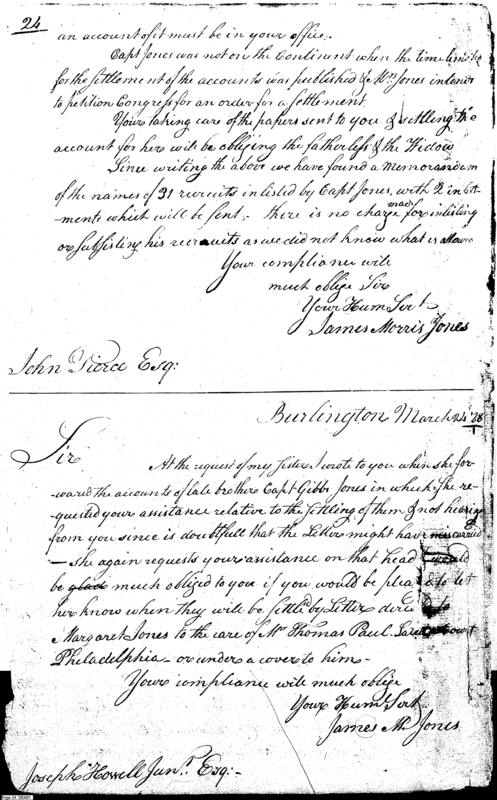 24
an account of it must be in your office.
Capt Jones was not on the Continent when the time limited
for the settlement of the accounts was published & Mrs Jones intends
to petition Congress for an order for a settlement
Your taking care of the papers sent to you & settling the
account for here will be obliging the fatherless & the Widow
Since writing the above we have found a Memorandum
of the names of 31 recruits inlisted by Capt Jones, with 2 inlist-
ments which will be sent, there is no charge made for inlisting
or subsisting his recruits as we did not know what is allowed
Your compliance will
much oblige Sir
Your Hum Servt
James Morris Jones
John Pierce Esq:
Burlington March 24
Sir
At the request of my Sister I wrote to you when she for-
-ward the accounts of late brother Capt Gibbs Jones in which she re-
-quested your assistance relative to the settling of them & not hearing
from you since is doubtfull that the Letters might have miscarried
- she again requests your assistance on that head & would
be glad much obliged to you if you would be pleas'd to let
her know when they will be settld by Letter
Margaret Jones to the care of Mr Thomas Paul Court
Philadelphia or under a cover to him -
Your compliance will much oblige
Your Huml Sert
James M. Jones
Joseph Howell Junr. Esq:-